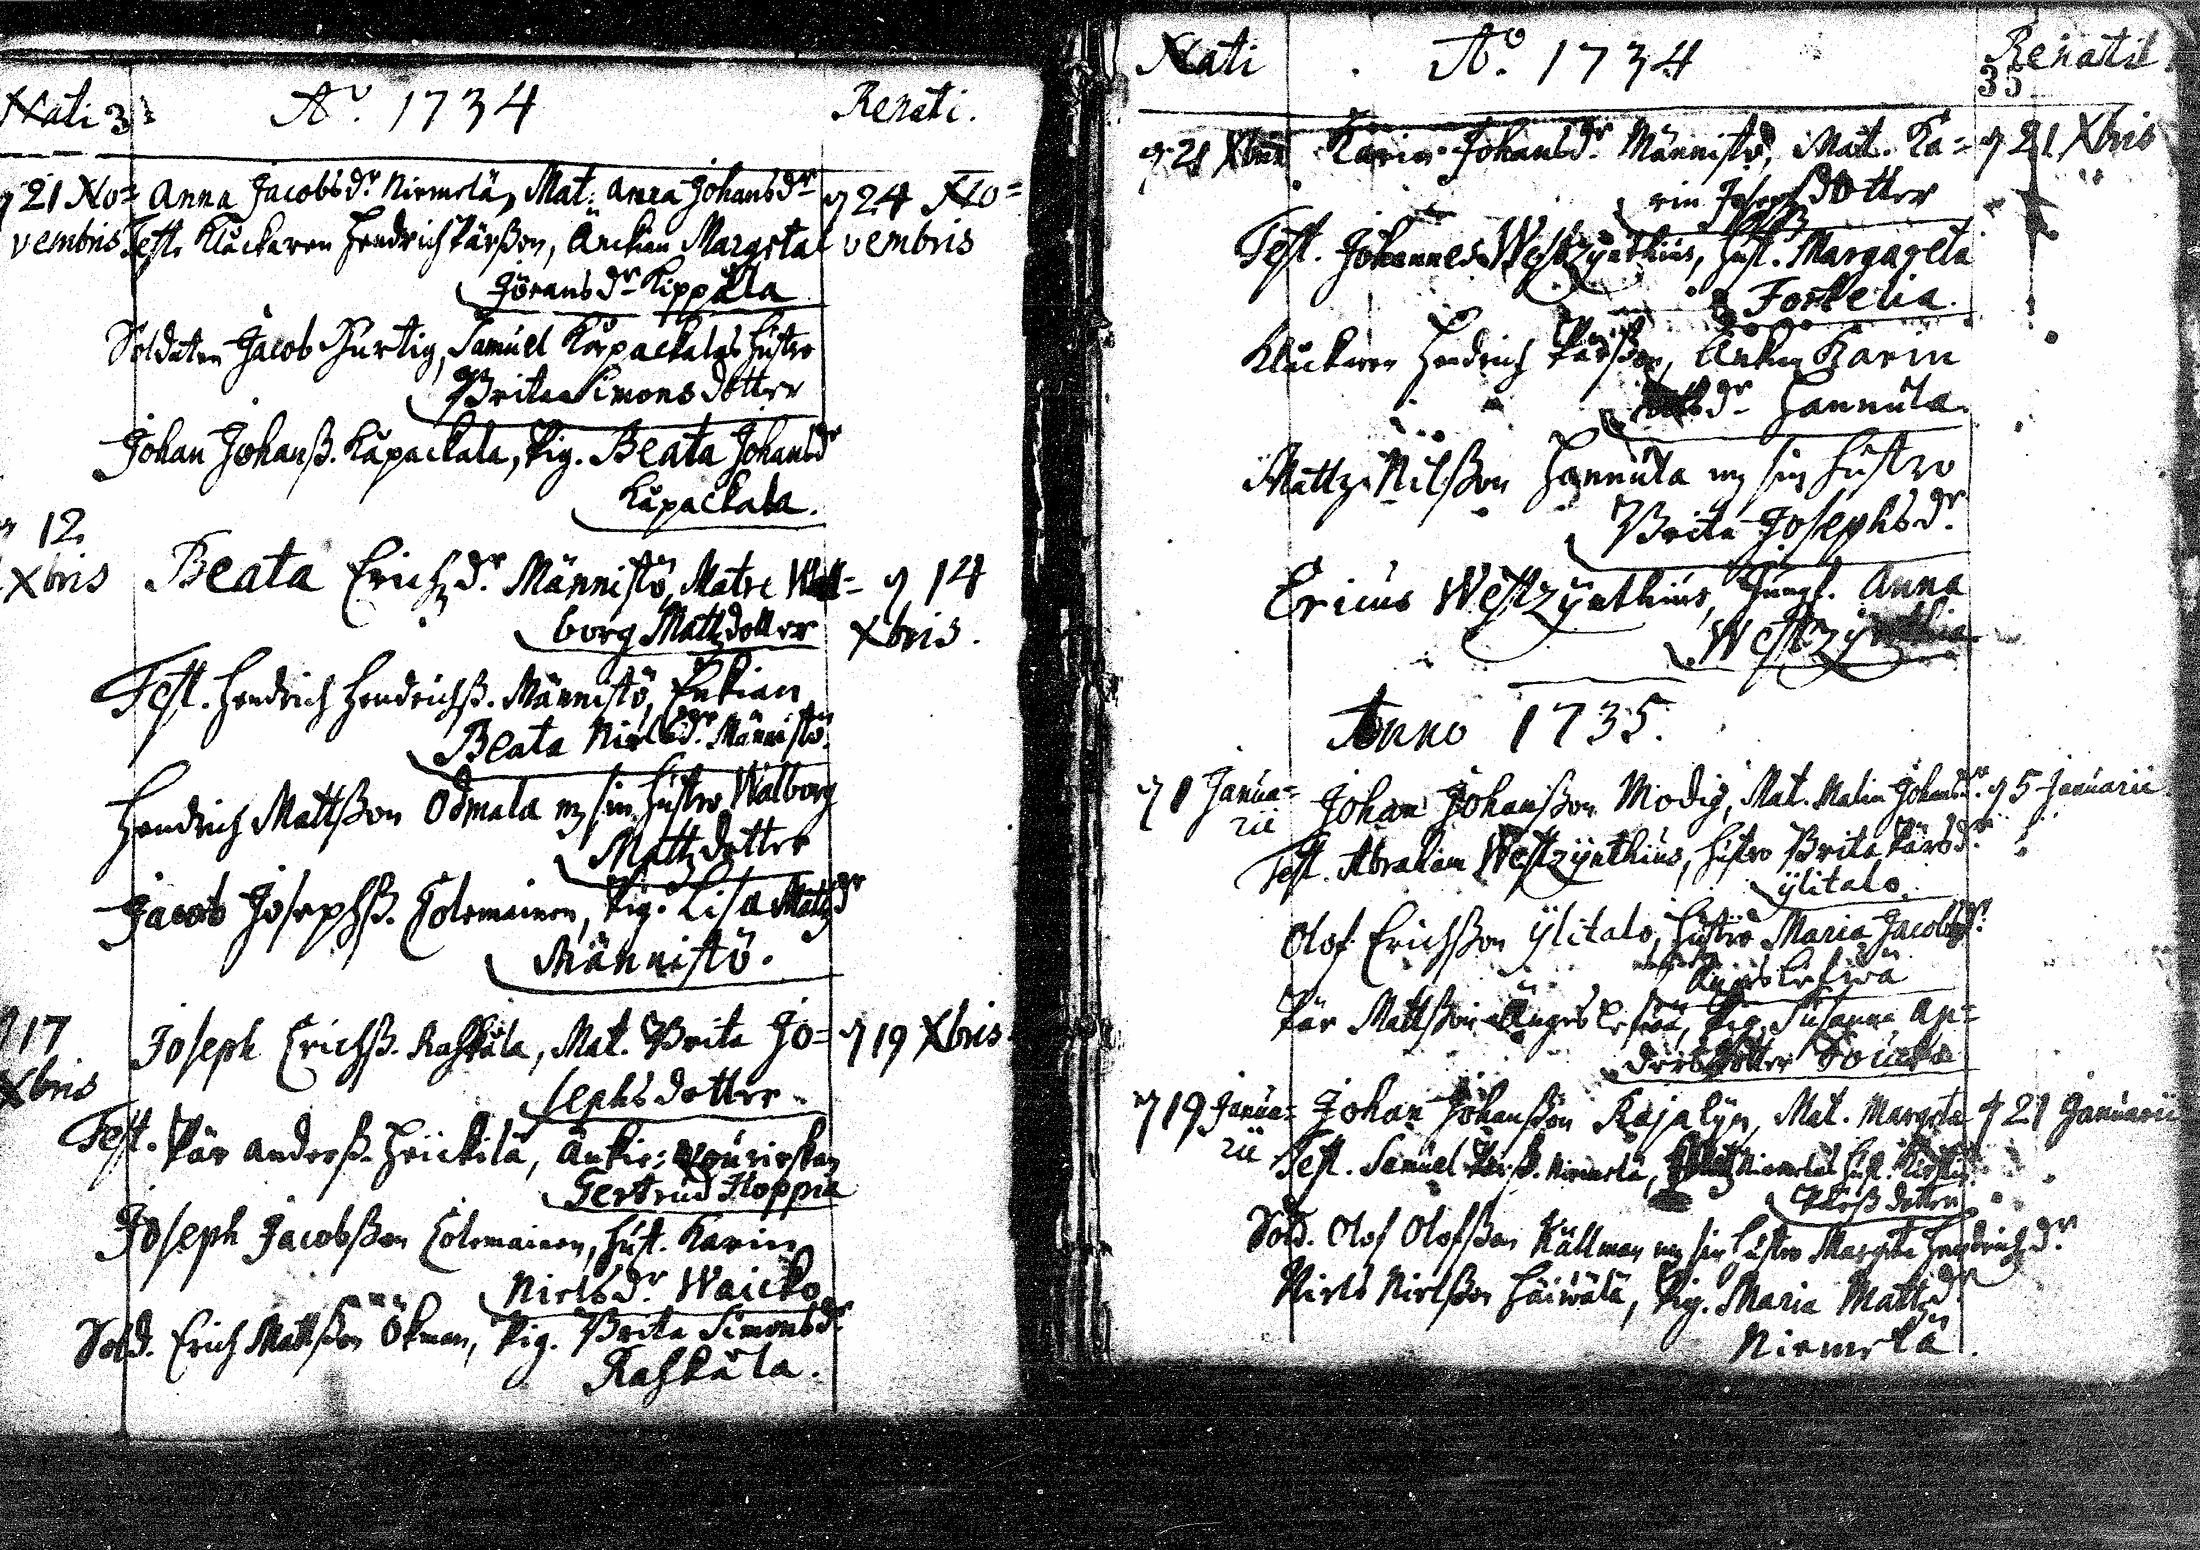 Nati 3
A:o 1734
Renati.
d 21 No= Anna Jacobsdr Niemelä, Mat. Anna Johansdr d 24 No=
vembris Test. Kluckaren Hendrich Pärßon, Änkian Margeta vembris
Jöransdr Kippåla
Soldaten Jacob Hurtig, Samuel Kårpackalas hustro
Brita Simons dotter
Johan Johanß. Kåpackala, Pig. Beata Johansdr
Kåpackala.
d 12
Xbris Beata Erichz dr Männistö, Matre Wall= d 14
borg Mattzdotter Xbris.
Test. Hendrich Hendrichß. Männistö, Enkian
Beata Nielsdr Männistö.
Hendrich Mattßon Odmala m sin hustro Walborg
Mattzdotter
Jacob Josephß. Tolemainen, Pig. Lisa Mattzdr
Männistö.
d 17 Joseph Erichß. Raskåla, Mat. Brita Jo= d 19 Xbris.
Xbris sephsdotter
Test. Pär Anderß. Heickilä, Änkie=
Gertrud Hoppia
Joseph Jacobßon Tolemainen, hust. Karin
Nielsdr Waicko
Sold. Erich Mattßon Ökman, Pig. Brita Simonsdr
Raskåla.
Nati A:o 1734 Renati
35
d 21 Xbris Karin Johansdr Männistö, Mat. Ka= d 21 Xbris
rin Josephsdotter
Test. Johannes Westzynthius, hust. Margareta
Forkelia.
Kluckaren Hendrich Pärßon, Änkian Karin
dr Hannula.
Mattz Nilßon Hannula m sin hustro
Brita Josephsdr
Ericus Westzynthius, Jungf. Anna
Westzynthia
Anno 1735.
d 1 Janua= Johan Johanßon Modig, Mat. Malin Johansdr. d 5 Januarii
rii
Test. Abraham Westzynthius, hustro Brita Pärsdr
ylitalo
Olof Erichßon ylitalo, hustro Maria Jacobsdr
Ängeslefwä
Pär Mattßon Ängeslefwä, Pig. Susanna An=
dersdotter Soucka
d 19 Janua= Johan Johanßon Rajalyn, Mat. Margeta d 21 Januarii
rii Test. Samuel Pärß. Niemelä, Niemeläs hust.
dotter
Sold. Olof Olofßon Källman m sin hustro Margeta Hendrichzdr
Niels Nielßon Häiwälä, Pig. Maria Mattzdr
Niemelä.